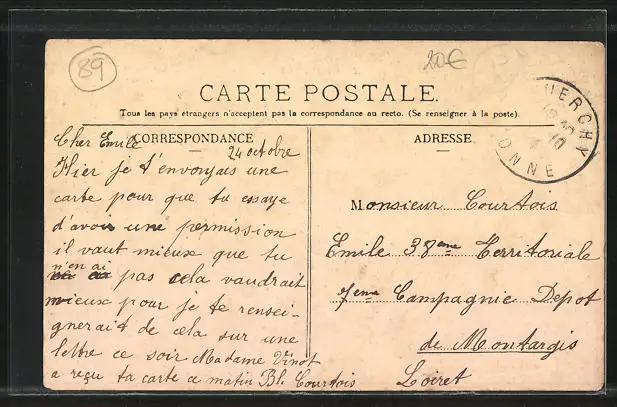 89
20€
CARTE POSTALE.
Tous les pays étrangers n'acceptent pas la correspondance au recto. (Se renseigner à la poste).
CORRESPONDANCE
Cher Emile
24 octobre
Hier je t'envoyais une
carte pour que tu essaye
d'avoir une permission
il vaut mieux que tu
n'en ai
pas cela vaudrait
mieux pour je te rensei-
gnerait de cela sur une
lettre ce soir Madame Vinot
a reçu ta carte ce matin Bl. Courtois
ADRESSE
Monsieur Courtois
Emile 38eme Territoriale
7eme Campagnie Depot
de Montargis
Loiret
UERCHY
YONNE